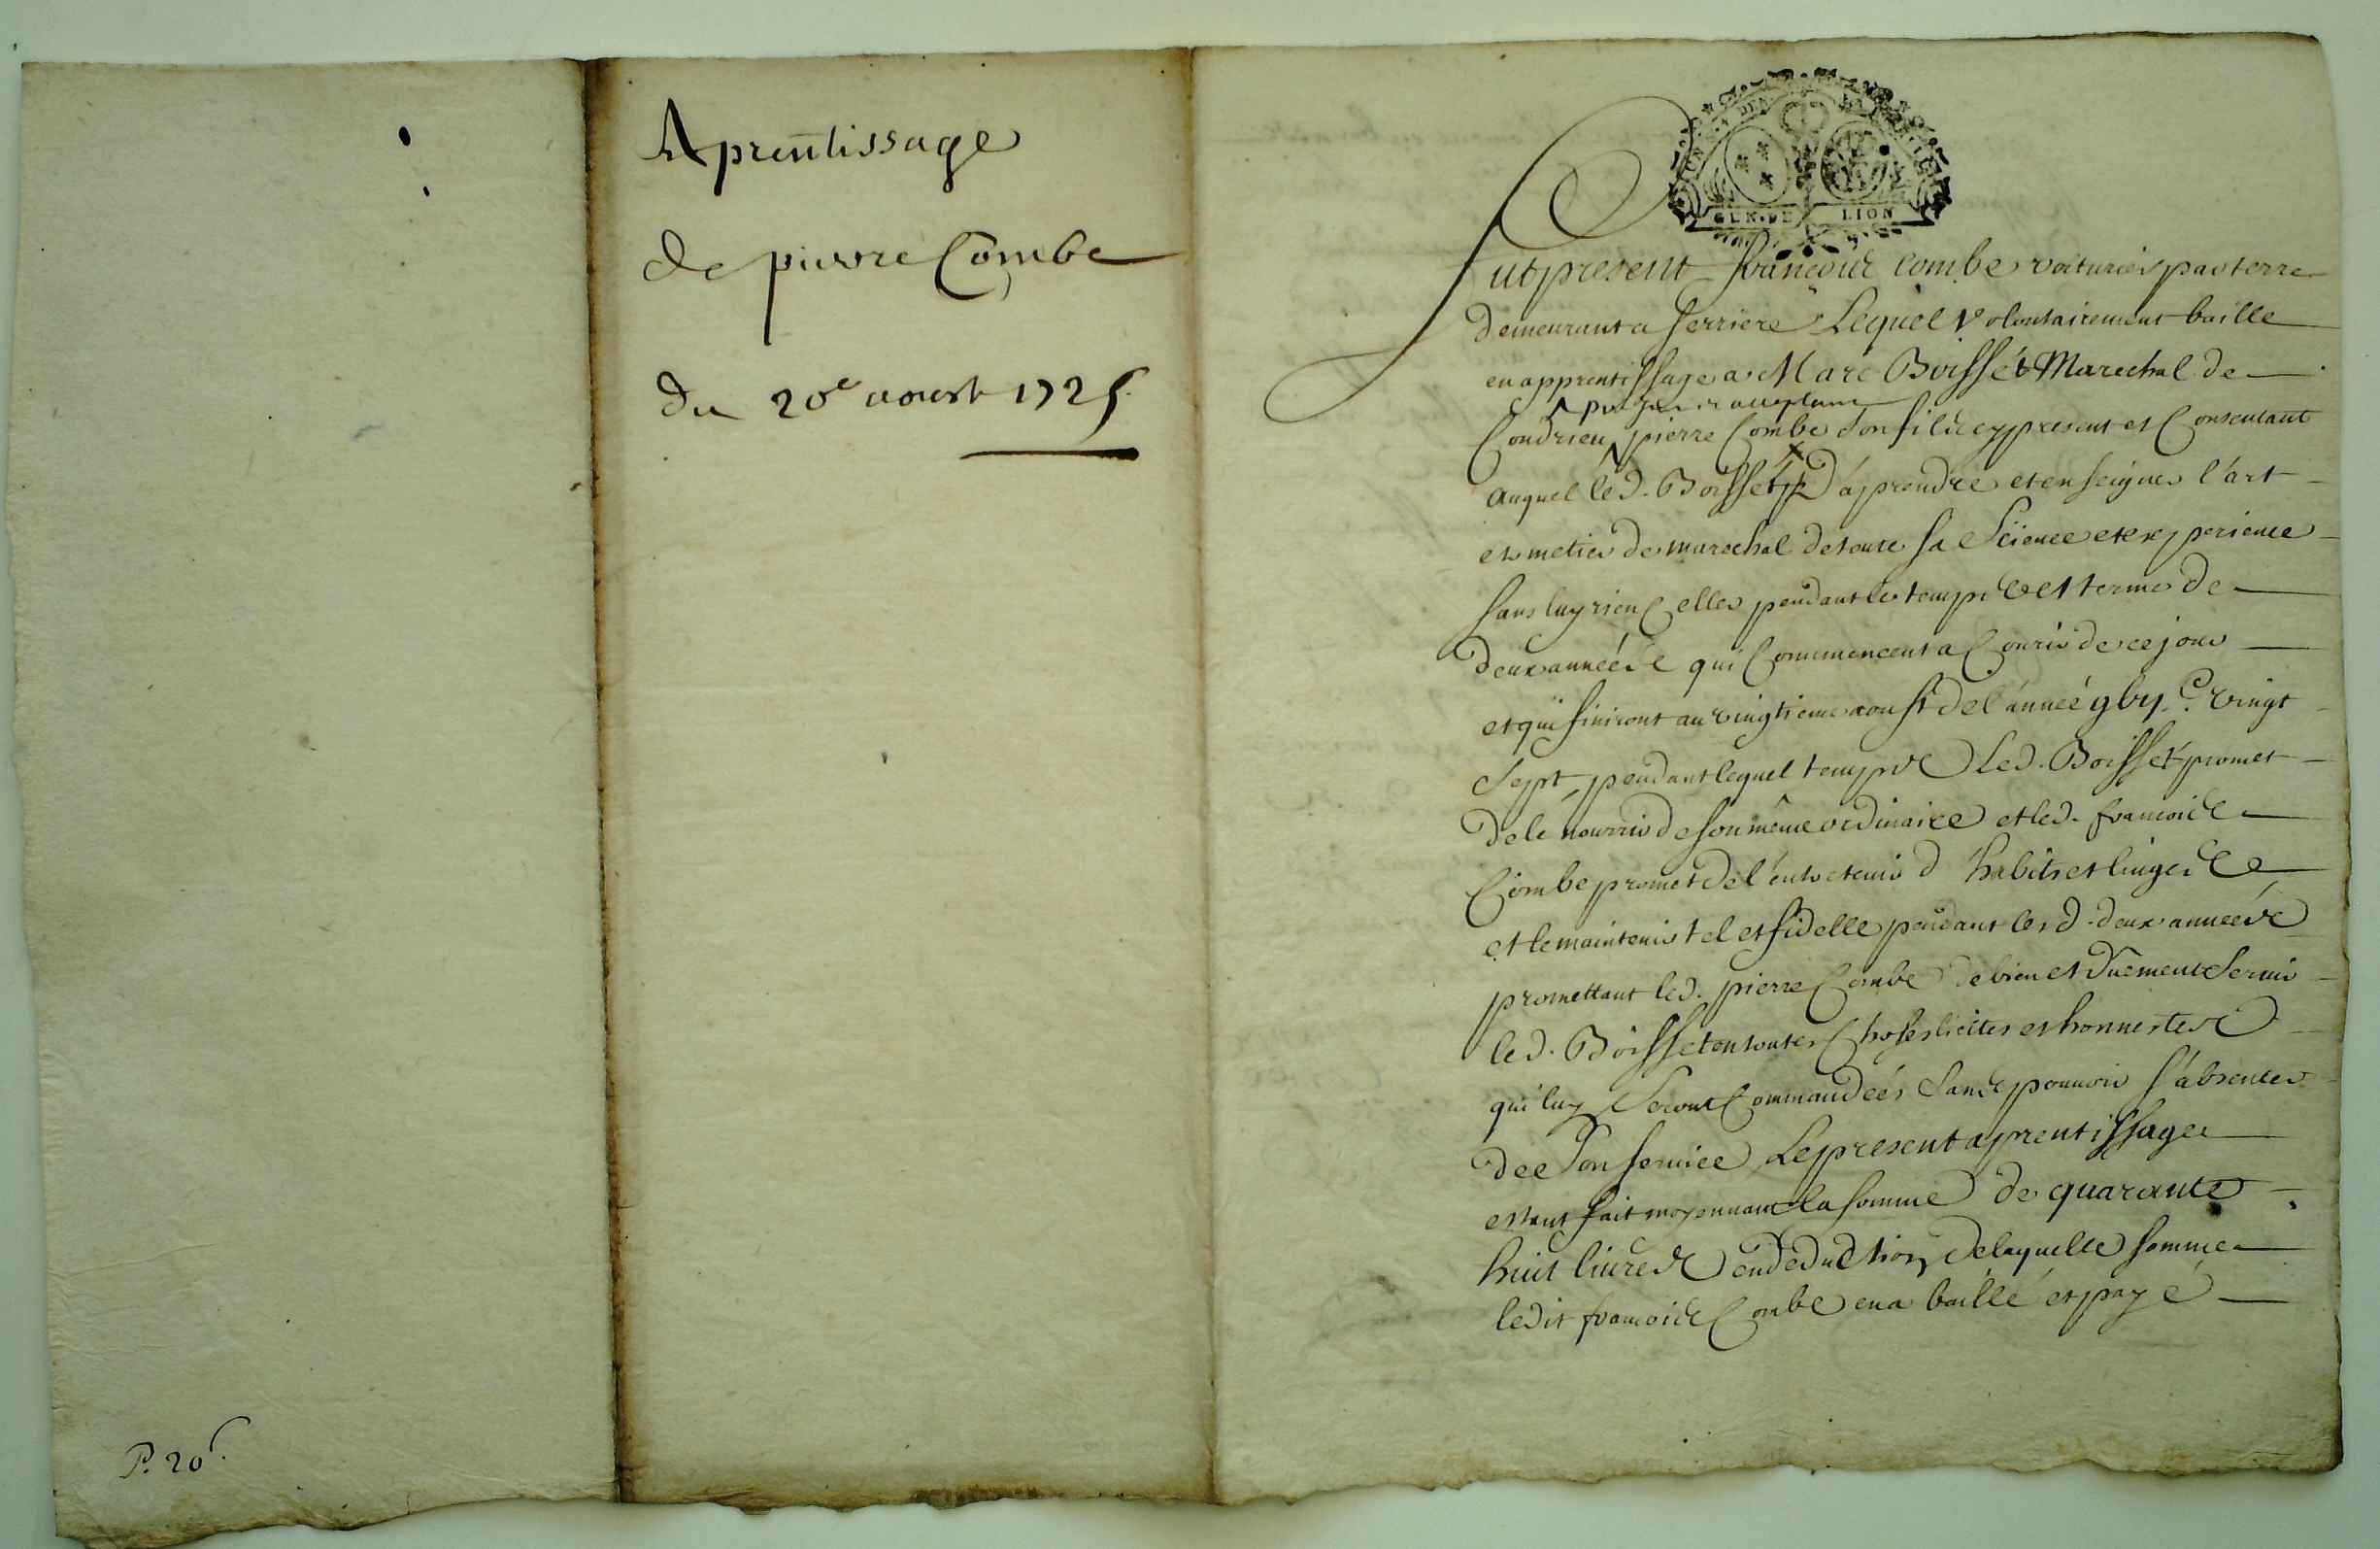 Aprentissage
de pierre Combe
du 20e aoust 1725
P. 20s.
GEN. DE LION
Fut present François Combe voiturier par terre
demeurant a Serriere Lequel volontairement baille
en apprentissage a Marc Boisset Marechal de
acceptant
Condrieu pierre Combe son fils cy present et Consentant
auquel led. Boisset p d'aprendre et enseigner l'art
et metier de marechal de toute sa Science et experience
sans luy rien Celler pendant le temps et terme de
deux années qui Commencent a Courir de ce jour
et qui finiront au vingtieme aoust de l'année gbijc. vingt
Sept, pendant lequel temps Led. Boisset promet
de le nourrir de son même ordinaire et led. françois
Combe promet de l'entretenir d'habits et linges
et le maintenir tel et fidelle pendant lesd. deux années
promettant led. pierre Combe de bien et dûement Servir
led. Boisset en toutes Choses licites et honnestes
qui luy Seront Commandées Sans pouvoir s'absenter
de Son service Le present aprentissage
estant fait moyennant la somme de quarante
huit livres en deduction de laquelle somme
ledit françois Combe en a baillé et payé